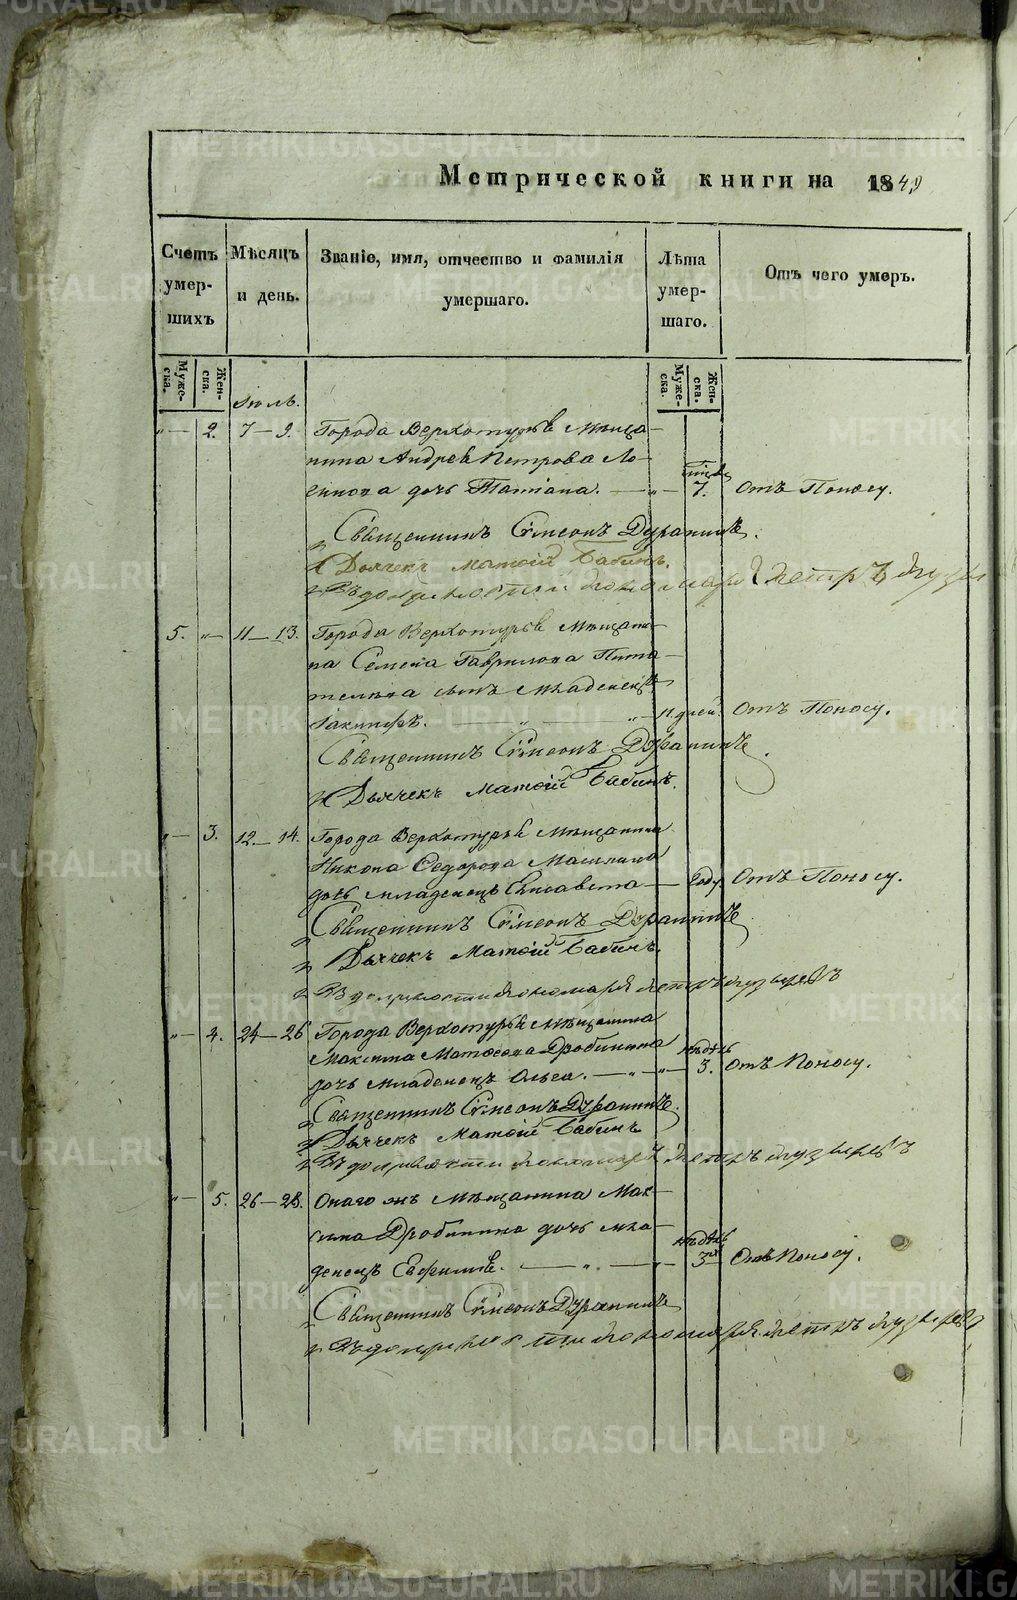 Метрической книги на 1849
Счетъ умершихъ
Мѣсяцъ и день.
Званіе, имя, отчество и фамилія умершаго.
Лѣта умершаго.
Отъ чего умеръ.
Мужеска.
Женска.
Мужеска.
Женска.
Іюль.
"— 2. 7—9. Города Верхотурья мѣща-
нина Андрея Петрова Ло-
гинова дочь Татіана. — " — 7. Отъ Поносу.
Священникъ Сѵмеонъ
Дьячекъ Матѳій Бабинъ.
Въ должности пономаря Петръ
5. "— 11—13. Города Верхотурья мѣщани-
на Семена Гаврилова Пита-
телева сынъ младенецъ
Іакинфъ. — " — "— 11. дней. Отъ Поносу.
Священникъ Сѵмеонъ
Дьячекъ Матѳій Бабинъ.
"— 3. 12.—14. Города Верхотурья мѣщанина
Никона Ѳедорова
дочь младенецъ Елисавета — Году Отъ Поносу.
Священникъ Сѵмеонъ
Дьячекъ Матѳій Бабинъ.
Въ должности пономаря Петръ
"— 4. 24—26 Города Верхотурья мѣщанина
Максима Матѳеева Дробинина недѣль
дочь младенецъ Ольга. — " — " — 3. Отъ Поносу.
Священникъ Сѵмеонъ
Дьячекъ Матѳій Бабинъ
Въ должности пономаря Петръ
"— 5. 26—28. Онаго жъ мѣщанина Мак-
сима Дробинина дочь мла- недѣль
денецъ Евфимія. — " — " — 3 Отъ Поносу.
Священникъ Сѵмеонъ
Въ должности пономаря Петръ
METRIKI.GASO-URAL.RU